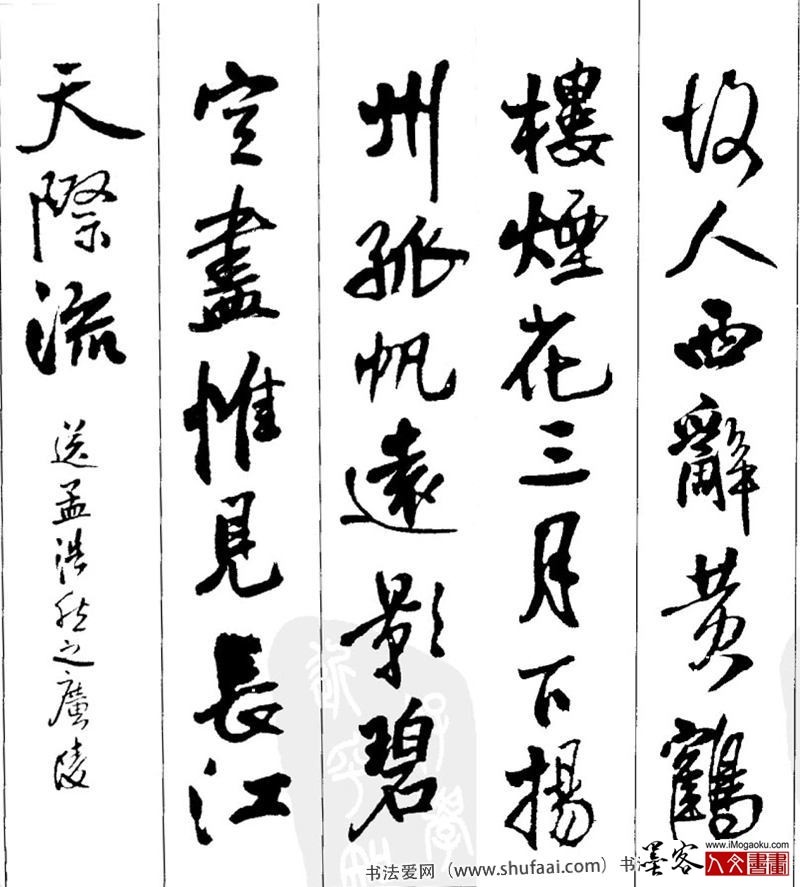 故人西辭黄鶴
樓煙花三月下揚
州孤帆遠影碧
空盡惟見長江
天際流
送孟浩然之廣陵
书法爱网（www.shufaai.com）书
墨客
www.iMogaoku.com
人文書畫